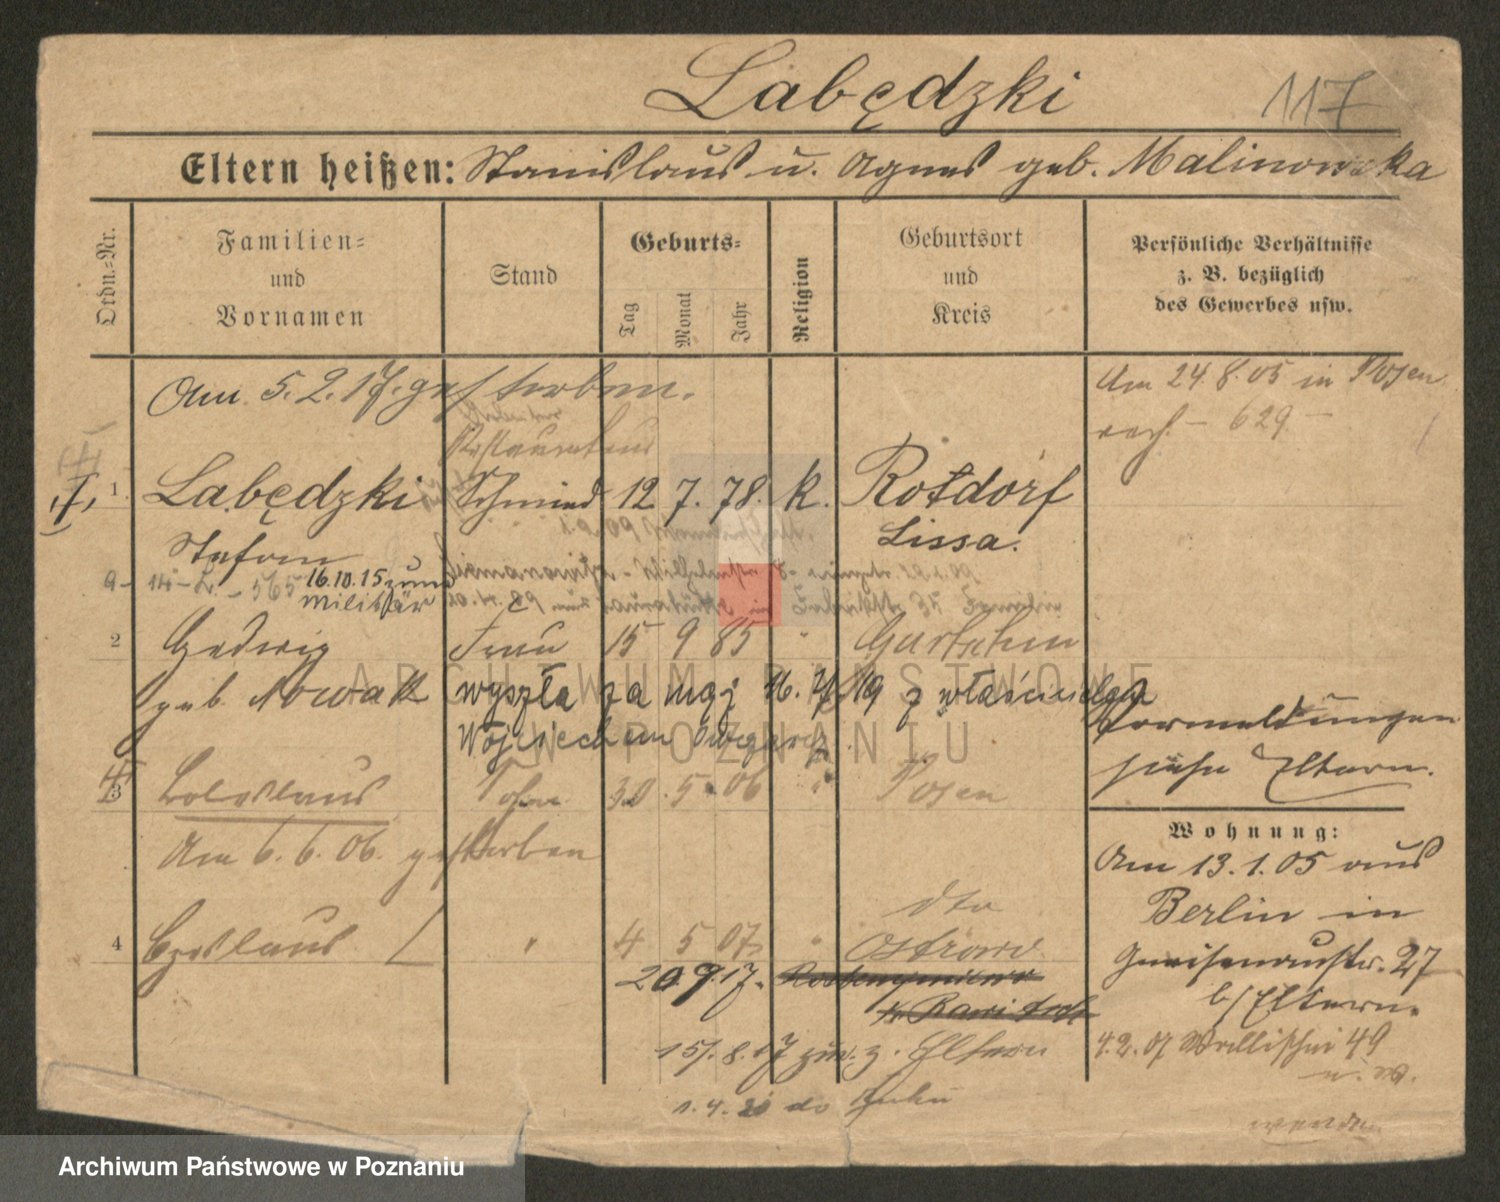 Labędzki
117
Eltern heißen: Stanislaus u. Agnes geb. Malinowska
Ordn.-Nr.
Familien-
und
Vornamen
Stand
Geburts-
Tag
Monat
Jahr
Religion
Geburtsort
und
Kreis
Persönliche Verhältnisse
z. B. bezüglich
des Gewerbes usw.
Am 5.2.17. gestorben.
Am 24.8.05 in Posen
629
1. Labędzki Schmied 12 7. 78. k. Rotdorf
Stefan Lissa.
16.10.15 zum
Militär
2 Hedwig Frau 15 9 85 "
geb. Nowak wyszła za mąż
Vormeldungen
siehe Eltern.
3 Boleslaus Sohn 30. 5. 06 " Posen
Am 6.6.06. gestorben
Wohnung:
Am 13.1.05 aus
Berlin in
Gneisenaustr. 27
b/Eltern.
dto
4 Czeslaus " 4 5 07 " Ostrowo
20.9.17.
15.8.17 zur. z. Eltern
4.2.07 Wallischei 49
1.4.20 do
wenden
ARCHIWUM PAŃSTWOWE
W POZNANIU
Archiwum Państwowe w Poznaniu